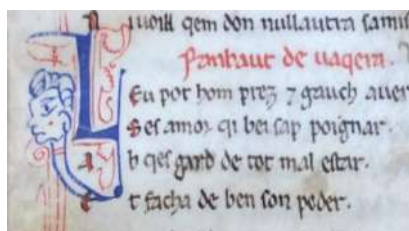 uoill qem don nullautra
Ranbaut de uaqera.
Leu pot hom prez ⁊ gauch auer
Ses amor qi bei sap poignar.
Ab qes gard de tot mal estar.
Et facha de ben son poder.